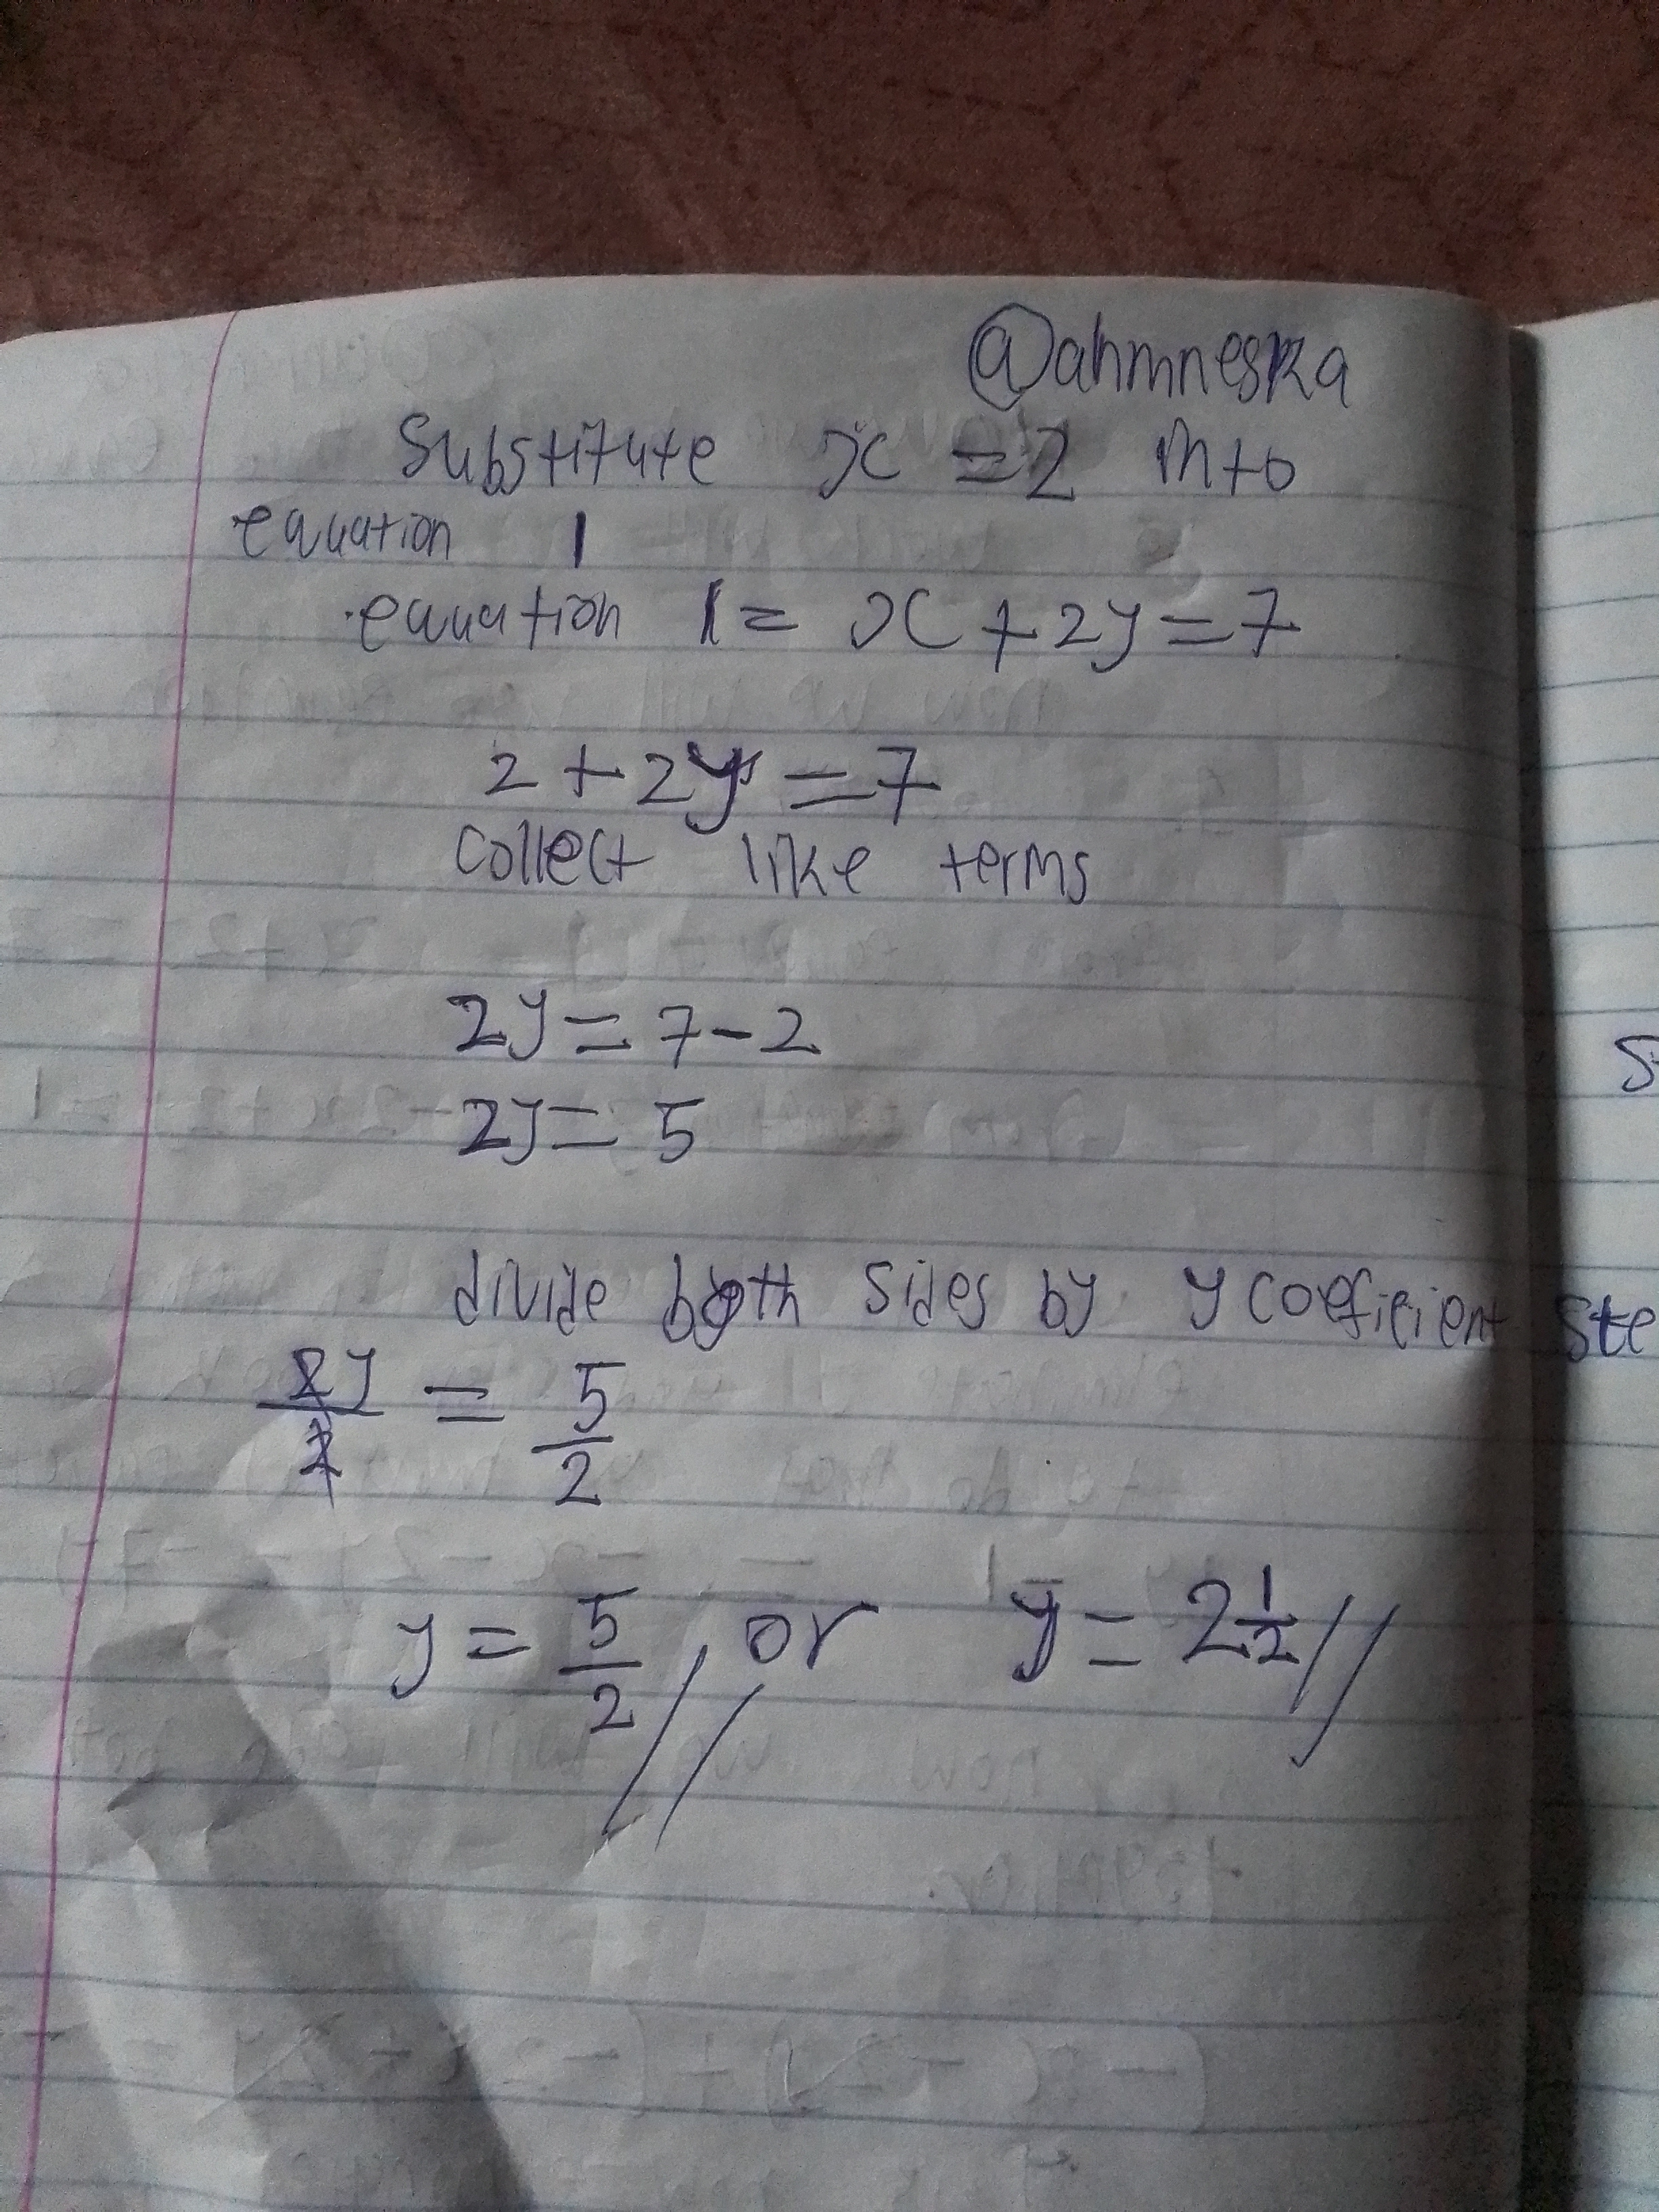 @ahmneska
Substitute x = 2 into
equation 1
equation 1 = x + 2y = 7
2 + 2y = 7
collect like terms
2y = 7 - 2
2y = 5
divide both sides by y coeficient
2y/2 = 5/2
y = 5/2 // or y = 2 1/2 //